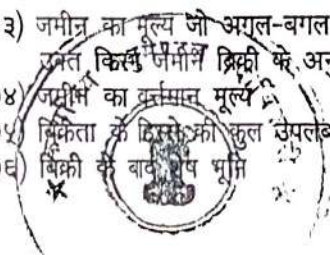 ३) जमीन का मूल्य जो अगल-बगल
उक्त किस्म जमीन बिक्री के अनु
०४) जमीन का वर्तमान मूल्य
०५) बिक्रेता के हिस्से की कुल उपलब
०६) बिक्री के बाद शेष भूमि